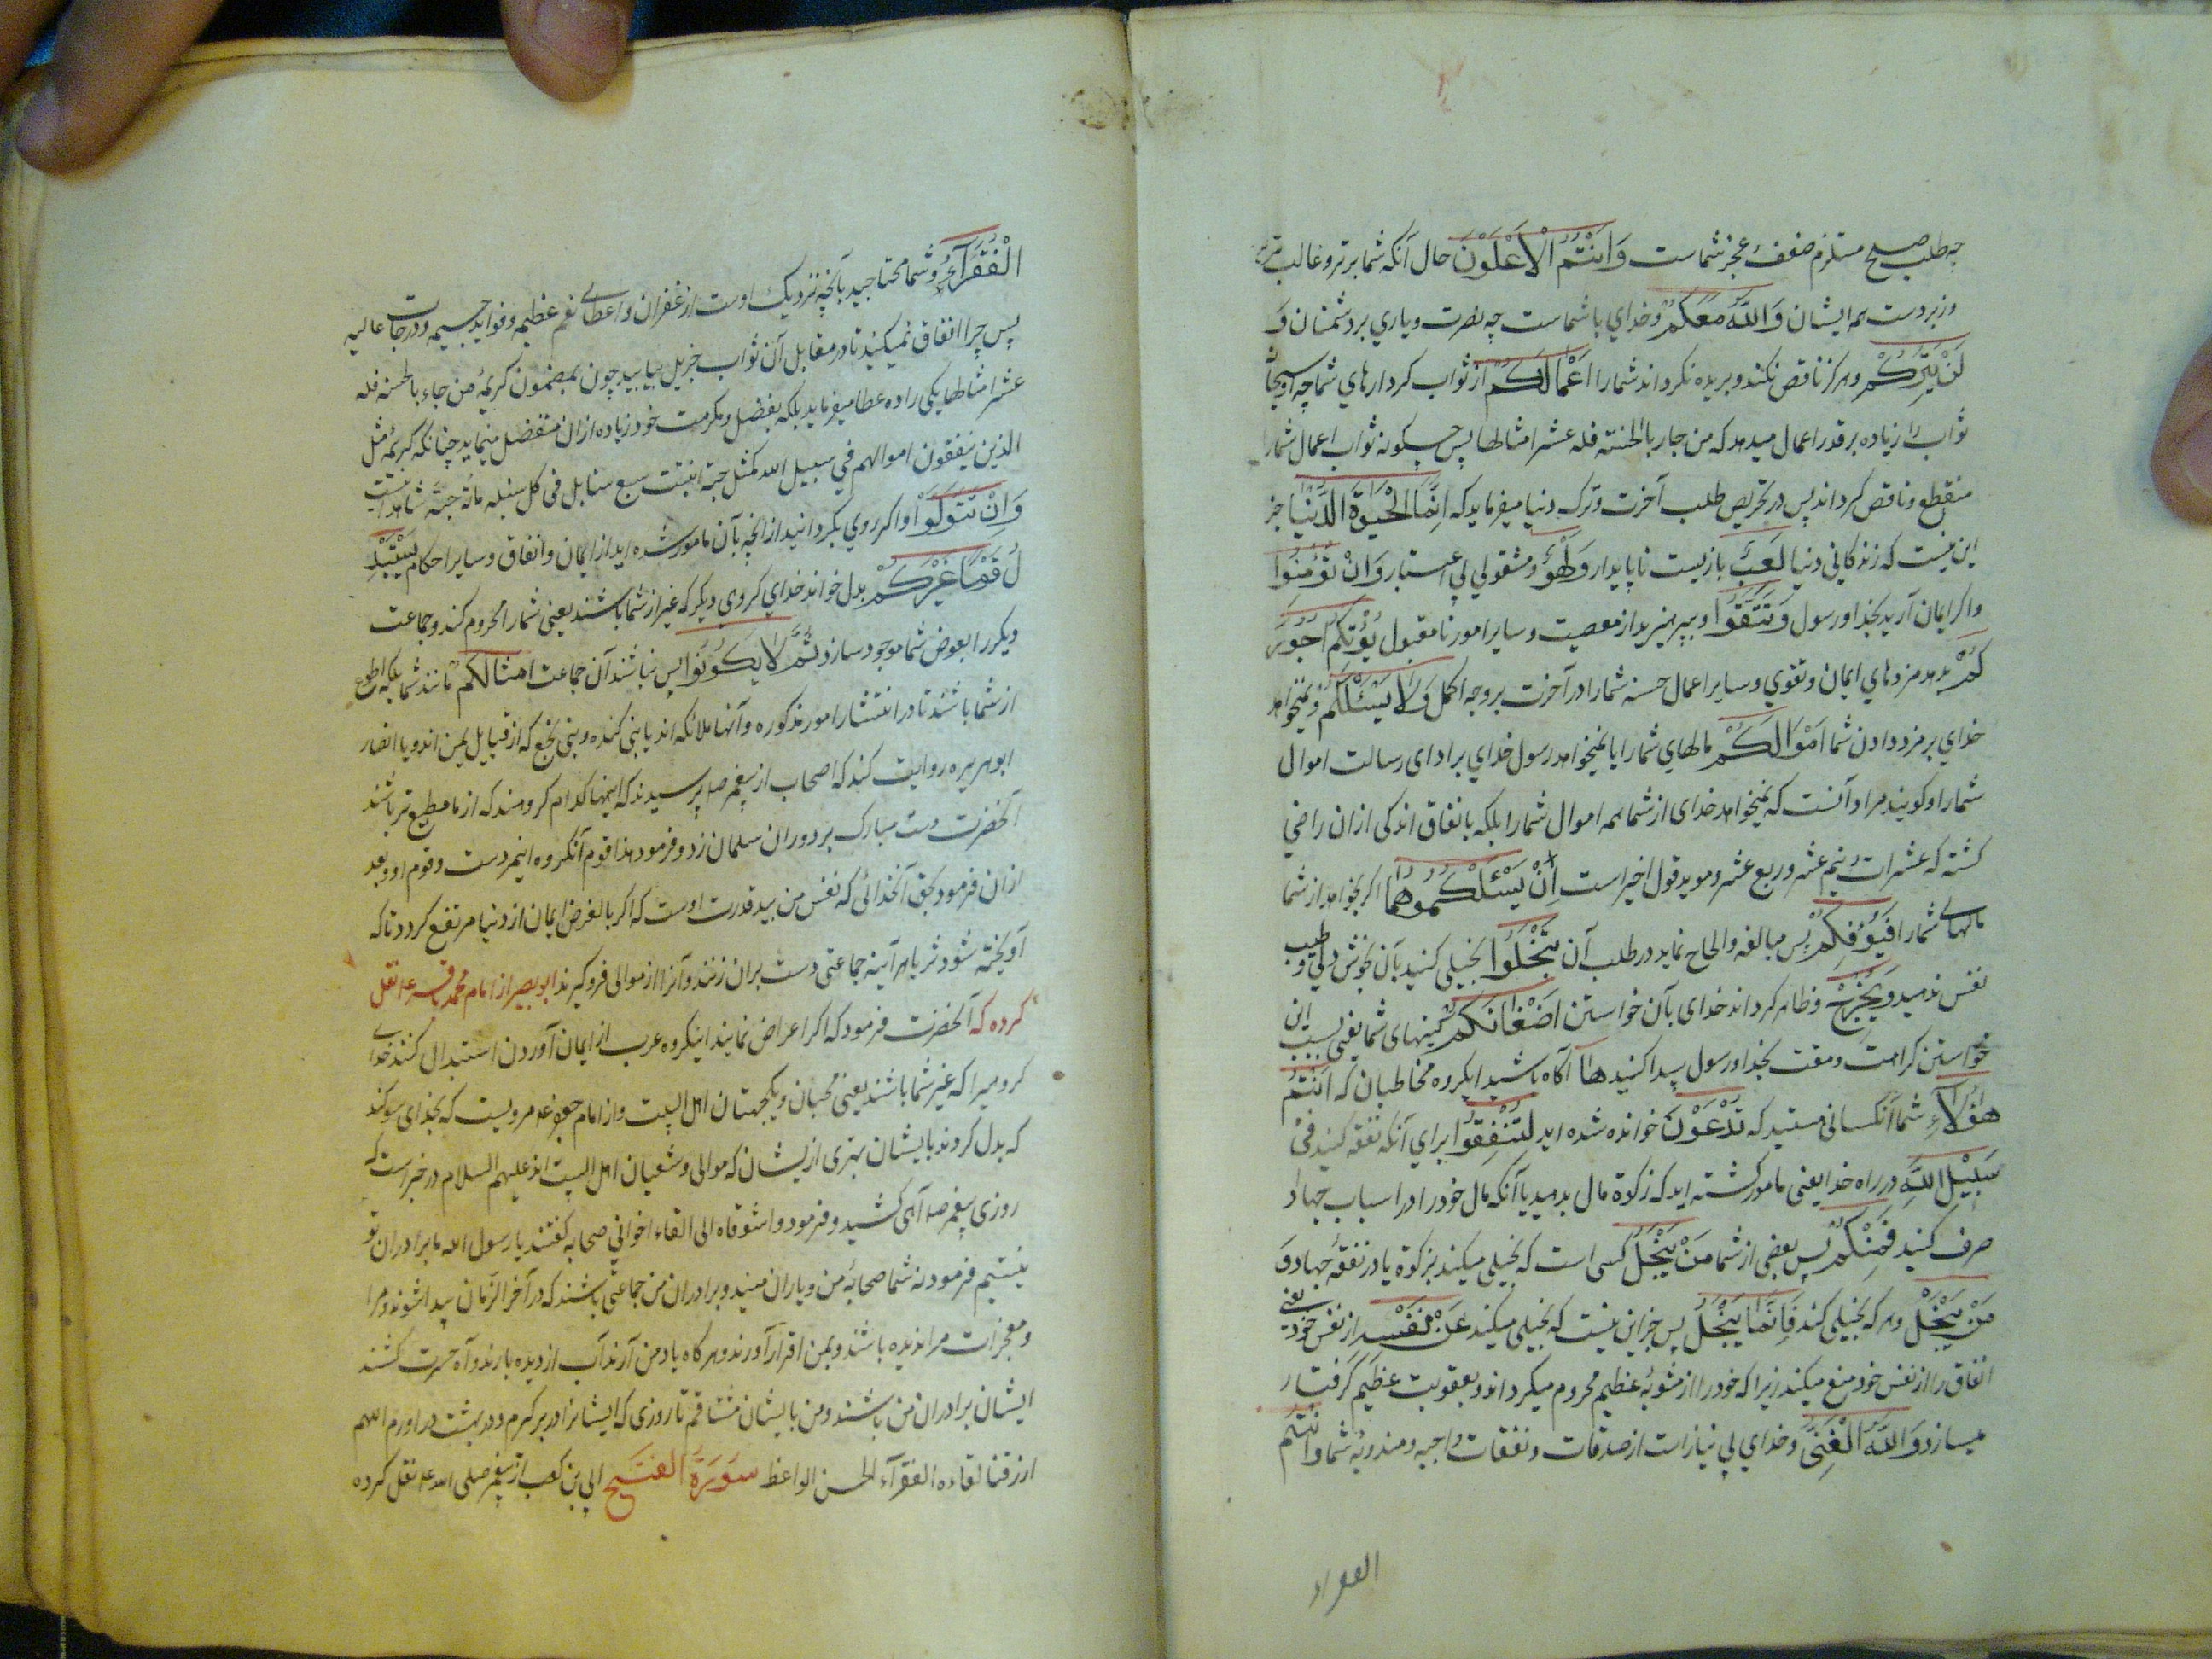 چه طلب صلح مستلزم ضعف و عجز شماست وَاَنْتُمُ الْاَعْلَوْنَ حال آنکه شما برتر و غالب ترید
و زبردست به ایشان وَاللّٰهُ مَعَكُمْ و خدای با شماست چه نصرت و یاری بر دشمنان وَ
لَنْ يَتِرَكُمْ و هرکز ناقص نکند و بریده نکرداند شما را اَعْمَالَكُمْ از ثواب کردارهای شما چه او سبحانه
ثواب را زیاده بر قدر اعمال میدهد که من جاء بالحسنة فله عشر امثالها پس چکونه ثواب اعمال شما را
منقطع و ناقص کرداند پس در تحریص طلب آخرت و ترک دنیا میفرماید که اِنَّمَا الْحَيٰوةُ الدُّنْيَا جز
این نیست که زندکانی دنیا لَعِبٌ بازیست ناپایدار وَلَهْوٌ و مشغولی بی اعتبار وَاِنْ تُؤْمِنُوا
و اکر ایمان آرید بخدا و رسول وَتَتَّقُوا و بپرهیزید از معصیت و سایر امور نامقبول يُؤْتِكُمْ اُجُورَ
كُمْ بدهد مزدهای ایمان و تقوی و سایر اعمال حسنه شما را در آخرت بر وجه اکمل وَلَا يَسْئَلْكُمْ و نمیخواهد
خدای بر مزد دادن شما اَمْوَالَكُمْ مالهای شما را یا نمیخواهد رسول خدای بر ادای رسالت اموال
شما را و کویند مراد آنست که نمیخواهد خدای از شما همه اموال شما را بلکه بانفاق اندکی ازان راضی
کشته که عشرات و نیم عشر و ربع عشر و موید قول اخیر است اِنْ يَسْئَلْكُمُوهَا اکر بخواهد از شما
مالهای شما را فَيُحْفِكُمْ پس مبالغه و الحاح نماید در طلب آن تَبْخَلُوا بخیلی کنید بآن بخوش دلی و طیب
نفس ندهید وَيُخْرِجْ و ظاهر کرداند خدای بآن خواستن اَضْغَانَكُمْ کینهای شما یعنی بسبب این
خواستن کراهت و مقت بخدا و رسول پیدا کنید هَا آکاه باشید ای کروه مخاطبان که اَنْتُمْ
هٰؤُلَاءِ شما آنکسانی هستید که تُدْعَوْنَ خوانده شده اید لِتُنْفِقُوا برای آنکه نفقه کنید فِي
سَبِيْلِ اللّٰهِ در راه خدا یعنی مامور کشته اید که زکوة مال بدهید یا آنکه مال خود را در اسباب جهاد
صرف کنید فَمِنْكُمْ پس بعضی از شما مَنْ يَبْخَلُ کسی است که بخیلی میکند بزکوة یا در نفقهٔ جهاد وَ
مَنْ يَبْخَلْ و هر که بخیلی کند فَاِنَّمَا يَبْخَلُ پس جز این نیست که بخیلی میکند عَنْ نَفْسِهِ از نفس خود یعنی
انفاق را از نفس خود منع میکند زیرا که خود را از مثوبهٔ عظیم محروم میکرداند و بعقوبت عظیم کرفتار
میسازد وَاللّٰهُ الْغَنِيُّ و خدای بی نیاز است از صدقات و نفقات واجبه و مندوبهٔ شما وَاَنْتُمُ
الفقراء
الْفُقَرَآءُ و شما محتاجید بآنچه نزدیک اوست از غفران و اعطای نعم عظیمه و فواید جسیمه و درجات عالیه
پس چرا انفاق نمیکنید تا در مقابل آن ثواب جزیل بیابید چون بمضمون کریمهٔ من جاء بالحسنه فله
عشر امثالها یکی را ده عطا میفرماید بلکه بفضل و مکرمت خود زیاده ازان متفضل مینماید چنانکه کریمهٔ مثل
الذین ینفقون اموالهم فی سبیل الله کمثل حبة انبتت سبع سنابل فی کل سنبلة مائة حبة شاهد اینست
وَاِنْ تَتَوَلَّوْا و اکر روی بکردانید از انچه بآن مامور شده اید از ایمان و انفاق و سایر احکام يَسْتَبْدِ
لْ قَوْمًا غَيْرَكُمْ بدل خواند خدای کروی دیکر که غیر از شما باشند یعنی شما را محروم کند و جماعت
دیکر را بعوض شما موجود سازد ثُمَّ لَا يَكُونُوا پس نباشند آن جماعت اَمْثَالَكُمْ مانند شما بلکه اطوع
از شما باشند تا در انتشار امور مذکوره و آنها ملائکه اند یا بنی کنده و بنی نخع که از قبایل یمن اند و یا انصار
ابوهریره روایت کند که اصحاب از پیغمبر ص پرسیدند که اینها کدام کروهند که از ما مطیع تر باشند
آنحضرت دست مبارک بر دو ران سلمان زد و فرمود هذا قوم آنکروه اینمردست و قوم او و بعد
ازان فرمود بحق آنخدائی که نفس من بید قدرت اوست که اکر بالفرض ایمان از دنیا مرتفع کردد تا که
آویخته شود ثریا هر آینه جماعتی دست بران زنند و آنرا از موالی فروکیرند ابوبصیر از امام محمد باقر ع نقل
کرده که آنحضرت فرمود که اکر اعراض نمایند اینکروه عرب از ایمان آوردن استبدال کند خدای
کروهیرا که غیر شما باشند یعنی محبان و یکجهتان اهل البیت و از امام جعفر ع مرویست که بخدای سوکند
که بدل کردند بایشان بهتری ازیشان که موالی و شیعیان اهل البیت اند علیهم السلام در خبر است که
روزی پیغمبر ص آهی کشید و فرمود واشوقاه الی القاء اخوانی صحابه کفتند یا رسول الله ما برادران تو
نیستیم فرمود نه شما صحابهٔ من و یاران منید و برادران من جماعتی باشند که در آخر الزمان پیدا شوند و مرا
و معجزات مرا ندیده باشند و بمن اقرار آورند و هرکاه یاد من آرند آب از دیده بارند و آه حسرت کشند
ایشان برادران من باشند و من بایشان مشتاقم تا روزی که ایشانرا در بر کیرم و در بهشت در اورم اللهم
ارزقنا لقاءه الفقرآء الحسن الواعظ سُورَةُ الفَتْحِ ابی بن کعب از پیغمبر صلی الله ع نقل کرده